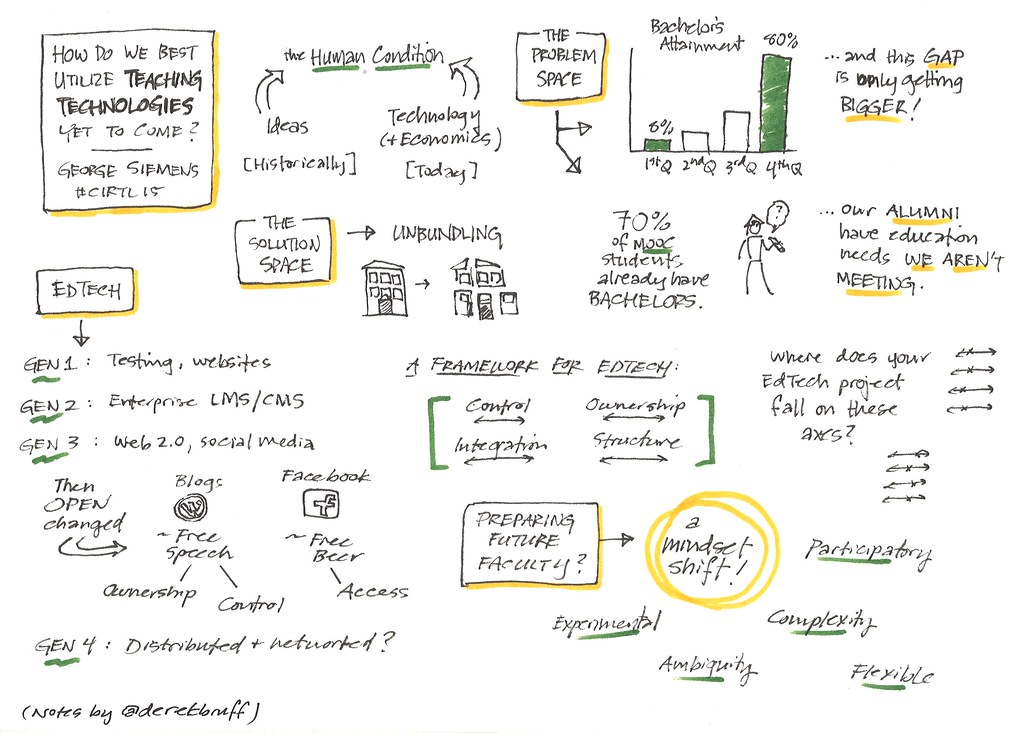 HOW DO WE BEST
UTILIZE TEACHING
TECHNOLOGIES
YET TO COME?
GEORGE SIEMENS
#CIRTL15
the Human Condition
Ideas
[Historically]
Technology
(+Economics)
[Today]
THE
PROBLEM
SPACE
Bachelor's
Attainment
80%
8%
1stQ 2ndQ 3rdQ 4thQ
...and this GAP
is only getting
BIGGER!
THE
SOLUTION
SPACE
UNBUNDLING
70%
of MOOC
students
already have
BACHELORS.
?
...our ALUMNI
have education
needs WE AREN'T
MEETING.
EDTECH
GEN 1: Testing, websites
GEN 2: Enterprise LMS/CMS
GEN 3: Web 2.0, social media
Then
OPEN
changed
Blogs
W
~Free
Speech
Ownership
Control
Facebook
f
~Free
Beer
Access
GEN 4: Distributed + networked?
A FRAMEWORK FOR EDTECH:
Control Ownership
Integration Structure
Where does your
EdTech project
fall on these
axes?
PREPARING
FUTURE
FACULTY?
a
mindset
shift!
Participatory
Experimental
Complexity
Ambiguity
Flexible
(Notes by @derekbruff)